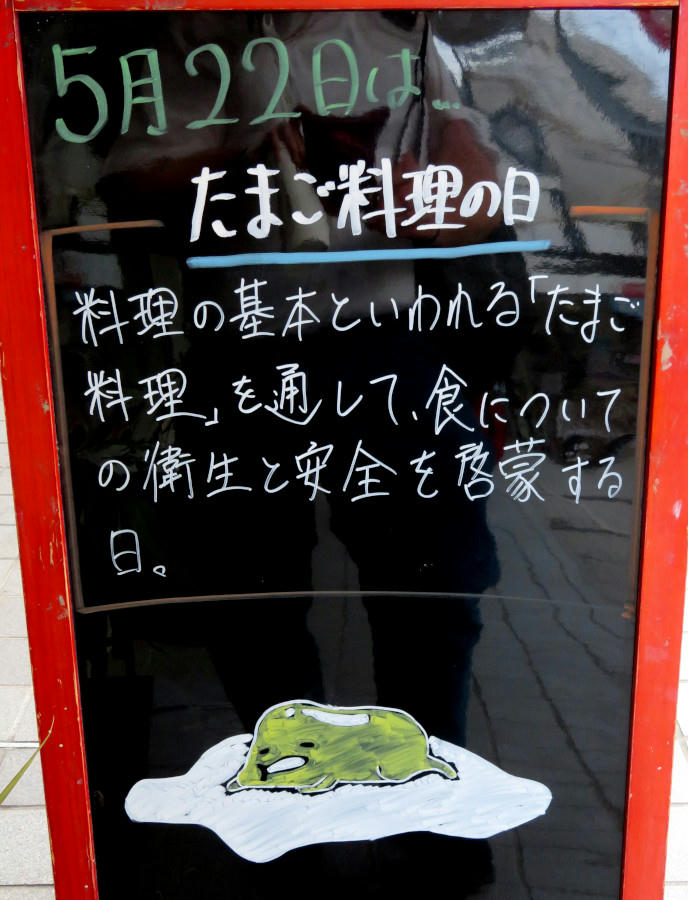 5月22日は...
たまご料理の日
料理の基本といわれる「たまご
料理」を通して、食について
の衛生と安全を啓蒙する
日。